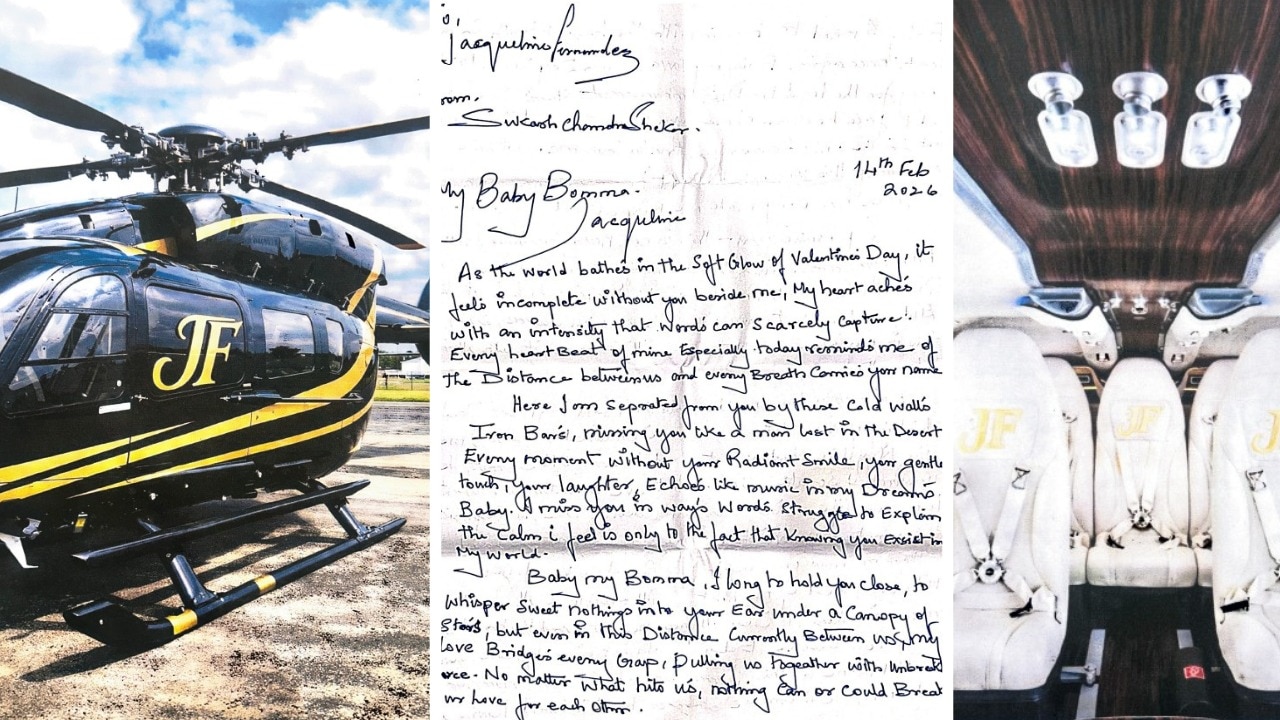 JF
o,
Jacqueline Fernandez
rom.
Sukash Chandra Shekar.
14th Feb
2026
My Baby Bomma.
Jacqueline
As the world bathes in the Soft Glow of Valentines Day, it
feels incomplete without you beside me, My heart aches
with an intensity that words can scarcely capture.
Every heart Beat of mine Especially today reminds me of
the Distance between us and every Breath Carries your name
Here I am seprated from you by these Cold walls
Iron Bars, missing you like a man lost in the Desert
Every moment without your Radiant Smile, your gentle
touch, your laughter, Echoes like music in my Dreams
Baby. I miss you in ways words struggle to Explain
the Calm i feel is only to the fact that knowing you Exsist in
My world.
Baby my Bomma, I long to hold you close, to
whisper sweet nothings into your Ear under a Canopy of
Stars, but even in this Distance Currently Between us, my
love Bridges every Gap, pulling us together with unbreak
orce. No matter what hits us, nothing Can or Could Break
ur love for each other.
JF
JF